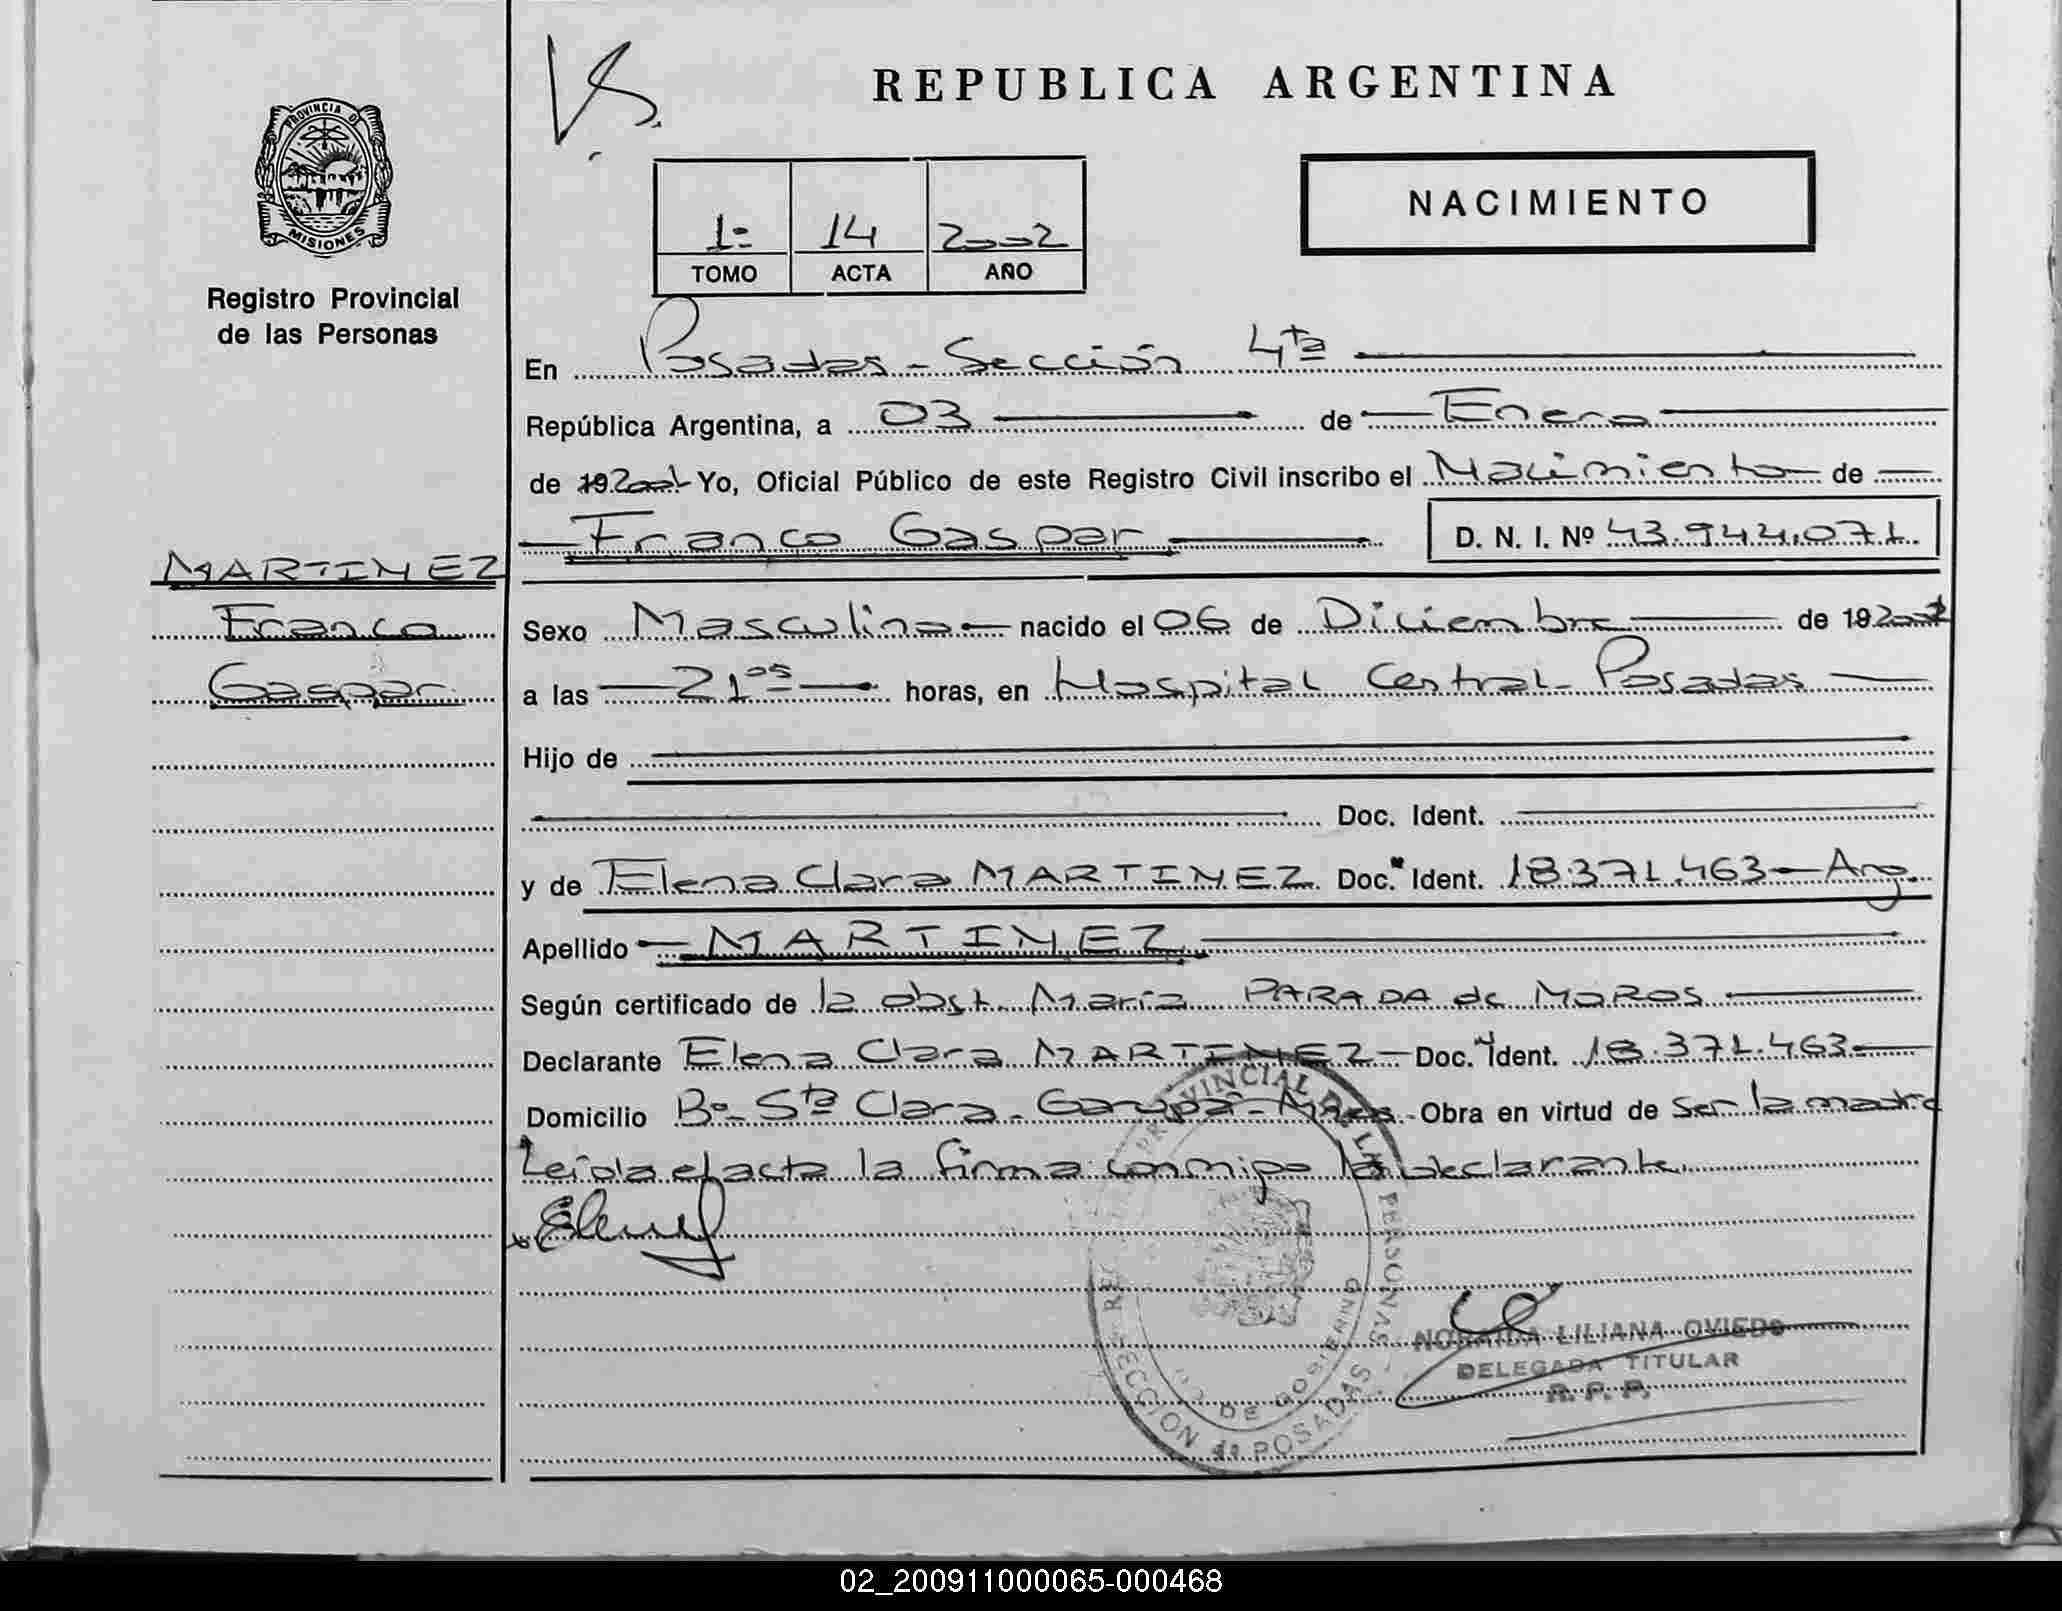 REPUBLICA ARGENTINA
PROVINCIA DE
MISIONES
Registro Provincial
de las Personas
NACIMIENTO
1º 14 2002
TOMO ACTA AÑO
En Posadas - Sección 4ta
República Argentina, a 03 de Enero
de Yo, Oficial Público de este Registro Civil inscribo el Nacimiento de
Franco Gaspar D. N. I. Nº 43.944.071
MARTINEZ
Franco
Gaspar
Sexo Masculino nacido el 06 de Diciembre de
a las 21 05 horas, en Hospital Central - Posadas
Hijo de
Doc. Ident.
y de Elena Clara MARTINEZ Doc. Ident. 18.371.463 - Arg.
Apellido MARTINEZ
Según certificado de la obst. María PARADA de MOROS
Declarante Elena Clara MARTINEZ - Doc. Ident. 18.371.463
Domicilio Bº Sta Clara - Garupá - Mnes - Obra en virtud de ser la madre
Leída el acta la firma conmigo la declarante.
PROVINCIAL DE LAS PERSONAS
SECCION 4ª POSADAS
DE GOBIERNO
LILIANA OVIEDO
DELEGADA TITULAR
R. P. P.
02_200911000065-000468